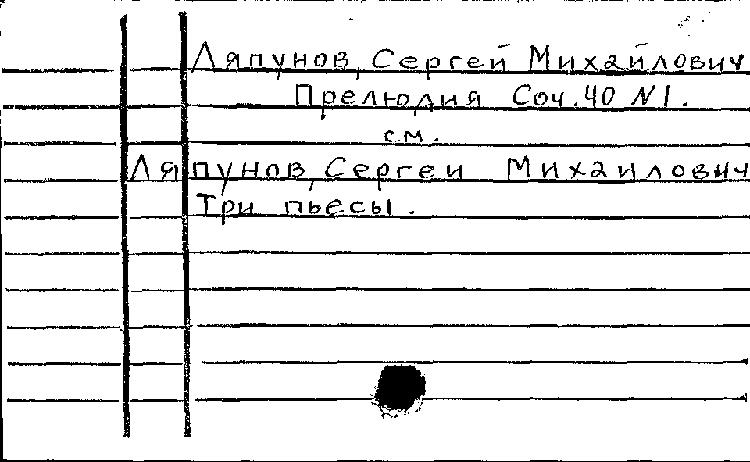 Ляпунов, Сергей Михайлович
Прелюдия Соч. 40 N1.
см.
Ляпунов, Сергей Михайлович
Три пьесы.